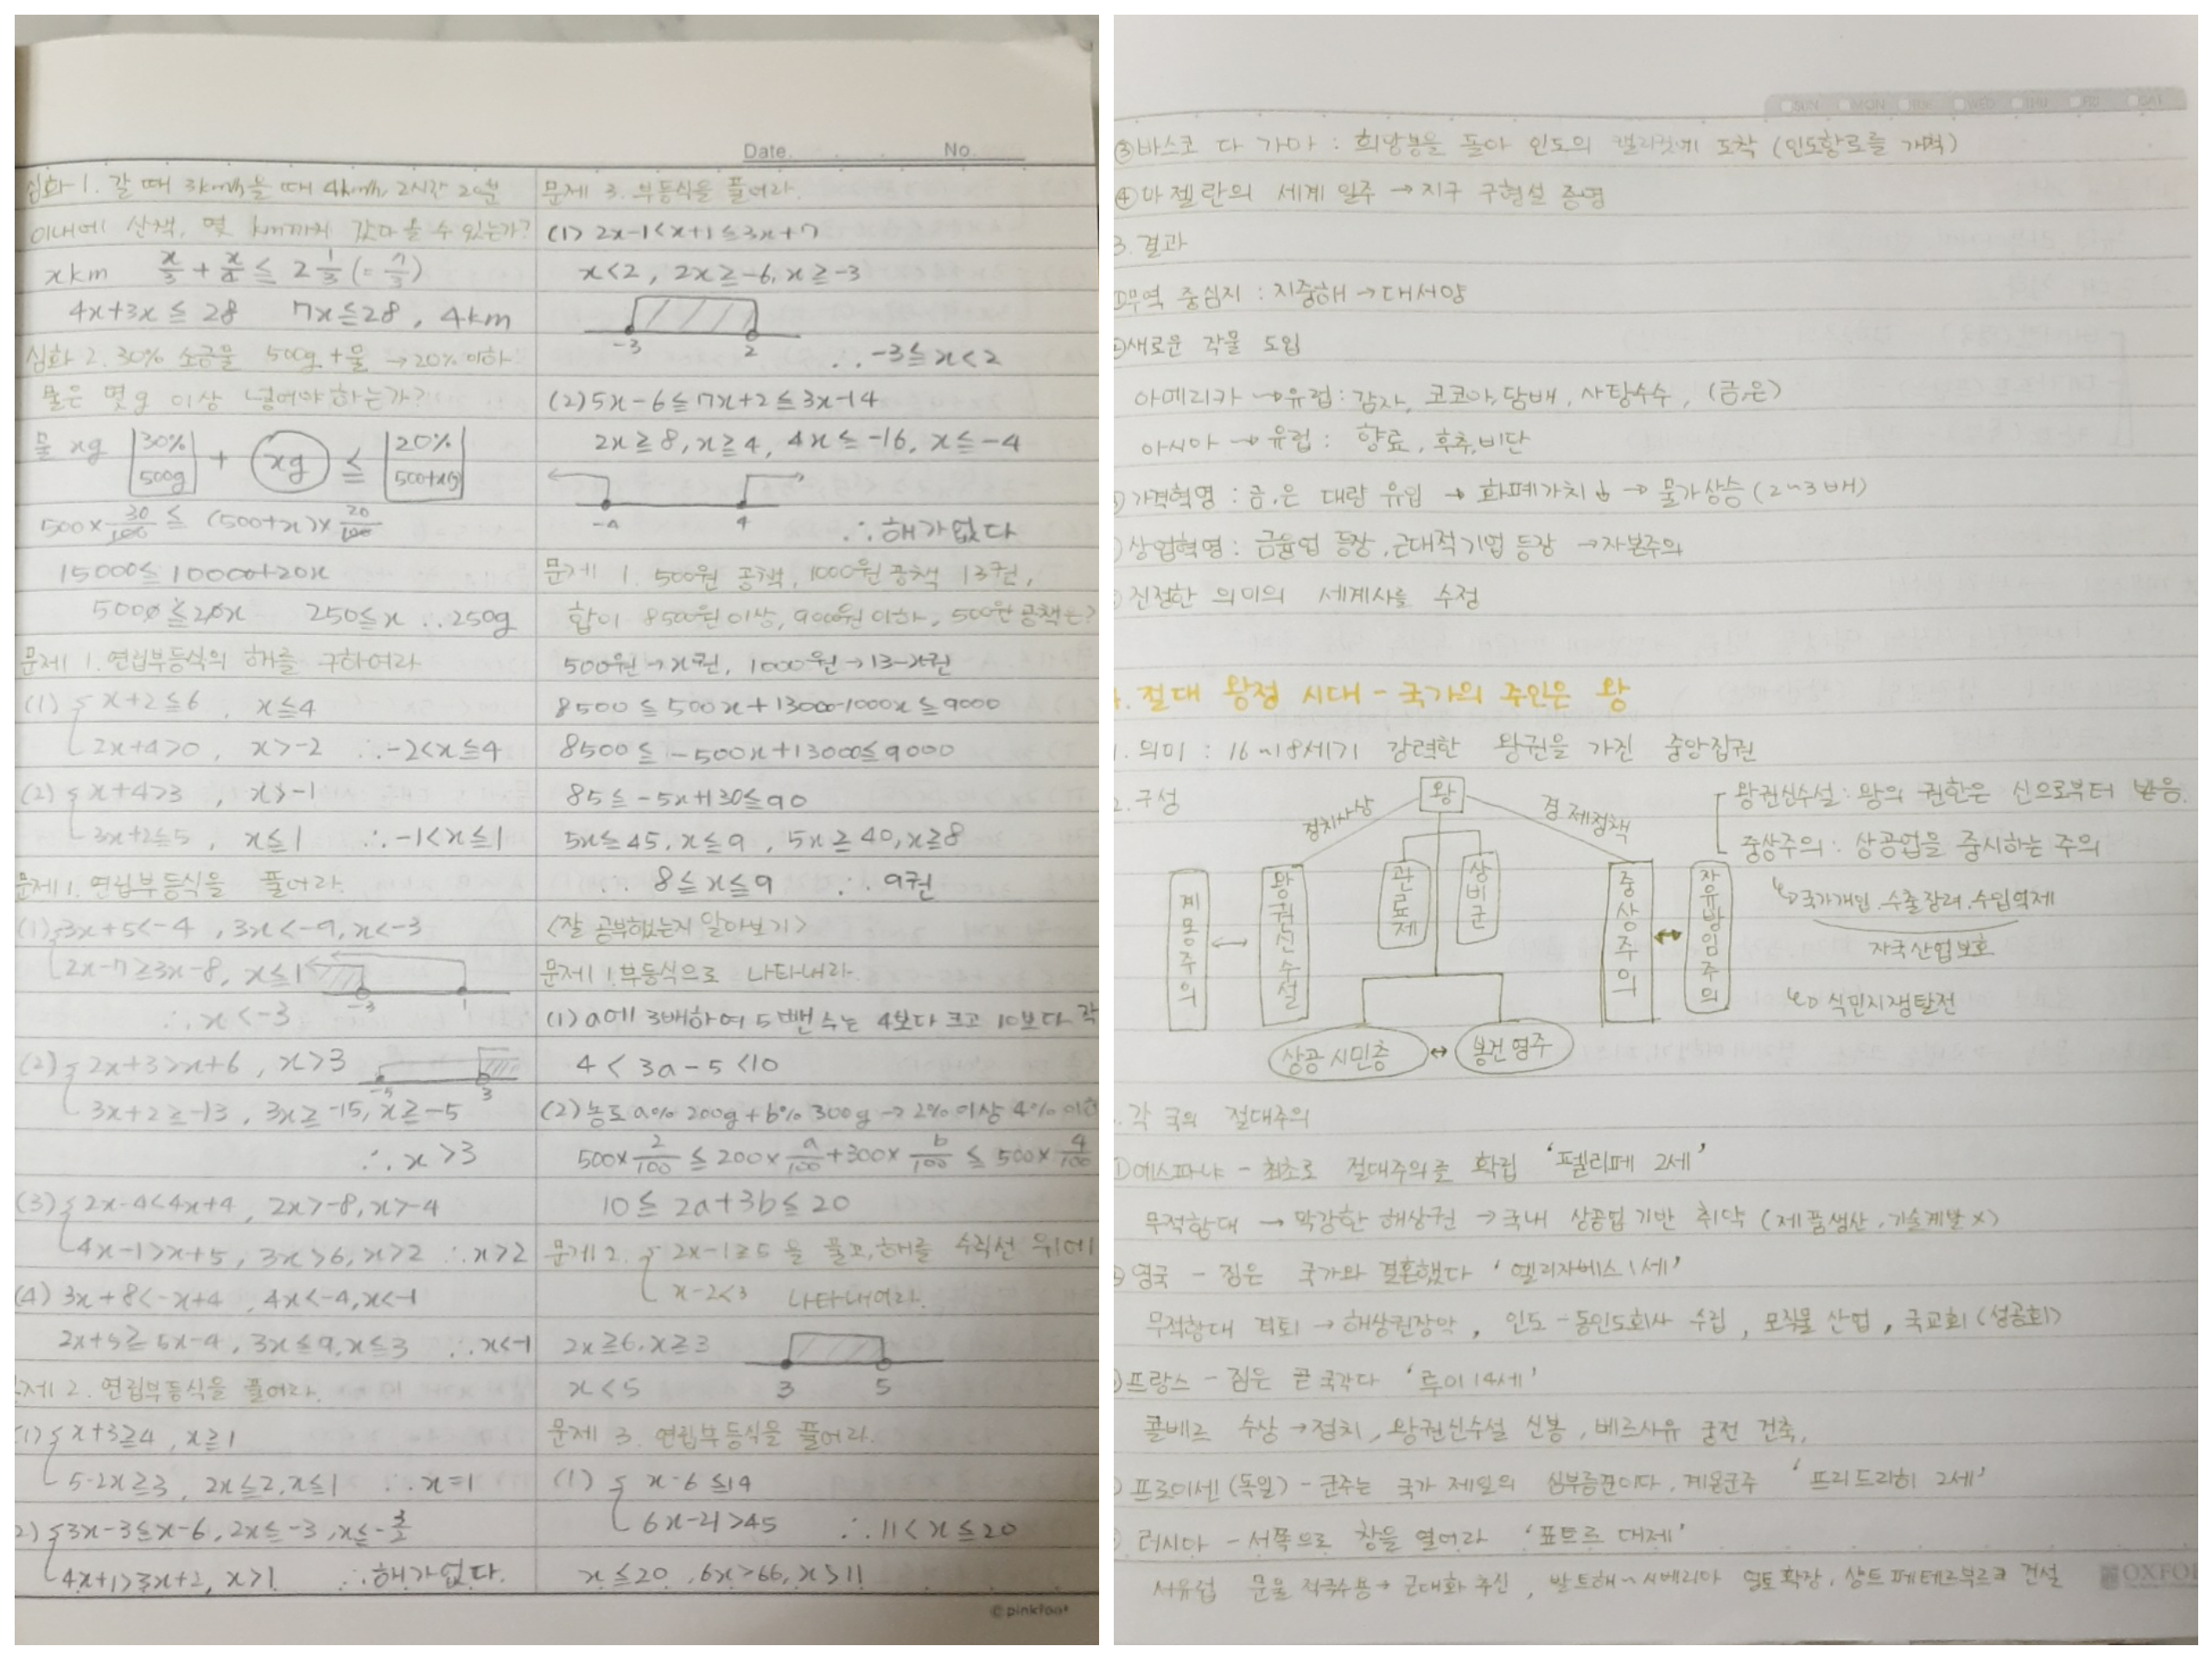 Date. No.
심화 1. 갈 때 3km/h 올 때 4km/h, 2시간 20분
이내에 산책, 몇 km까지 갔다 올 수 있는가?
xkm x/3 + x/4 ≦ 2 1/3 (= 7/3)
4x+3x ≦ 28 7x≦28, 4km
심화 2. 30% 소금물 500g + 물 → 20% 이하
물은 몇 g 이상 넣어야 하는가?
물 xg 30% 500g + xg ≦ 20% 500+x(g)
500× 30/100 ≦ (500+x)× 20/100
15000≦10000+20x
5000≦20x 250≦x ∴250g
문제 1. 연립부등식의 해를 구하여라
(1) x+2≦6, x≦4
2x+4>0, x>-2 ∴-2<x≦4
(2) x+4>3, x>-1
3x+2≦5, x≦1 ∴-1<x≦1
문제1. 연립부등식을 풀어라.
(1) 3x+5<-4, 3x<-9, x<-3
2x-7≥3x-8, x≦1 -3 1
∴x<-3
(2) 2x+3>x+6, x>3
3x+2≥-13, 3x≥-15, x≥-5 -5 3
∴x>3
(3) 2x-4<4x+4, 2x>-8, x>-4
4x-1>x+5, 3x>6, x>2 ∴x>2
(4) 3x+8<-x+4, 4x<-4, x<-1
2x+5≥5x-4, 3x≦9, x≦3 ∴x<-1
제 2. 연립부등식을 풀어라.
(1) x+3≧4, x≧1
5-2x≧3, 2x≦2, x≦1 ∴x=1
2) 3x-3≦x-6, 2x≦-3, x≦-3/2
4x+1>3x+2, x>1 ∴해가없다.
문제 3. 부등식을 풀어라.
(1) 2x-1<x+1≦3x+7
x<2, 2x≧-6, x≧-3
-3 2
∴-3≦x<2
(2) 5x-6≦7x+2≦3x-14
2x≧8, x≧4, 4x≦-16, x≦-4
-4 4
∴해가없다
문제 1. 500원 공책, 1000원 공책 13권,
합이 8500원 이상, 9000원 이하, 500원 공책은?
500원→x권, 1000원→13-x권
8500≦500x+13000-1000x≦9000
8500≦-500x+13000≦9000
85≦-5x+130≦90
5x≦45, x≦9, 5x≧40, x≧8
∴8≦x≦9 ∴9권
<잘 공부했는지 알아보기>
문제 1. 부등식으로 나타내라.
(1) a에 3배하여 5 뺀 수는 4보다 크고 10보다 작
4<3a-5<10
(2) 농도 a% 200g+b% 300g→2%이상 4%이하
500× 2/100 ≦200× a/100 +300× b/100 ≦500× 4/100
10≦2a+3b≦20
문제 2. 2x-1≧5 을 풀고, 해를 수직선 위에
x-2<3 나타내어라.
2x≧6, x≧3
x<5 3 5
문제 3. 연립부등식을 풀어라.
(1) x-6≦14
6x-21>45 ∴11<x≦20
x≦20, 6x>66, x>11
©pinkfoot
SUN MON TUE WED THU FRI SAT
③바스코 다 가마 : 희망봉을 돌아 인도의 캘리컷에 도착 (인도항로를 개척)
④마젤란의 세계 일주 → 지구 구형설 증명
3. 결과
①무역 중심지 : 지중해→대서양
②새로운 작물 도입
아메리카 → 유럽 : 감자, 코코아, 담배, 사탕수수, (금,은)
아시아 → 유럽 : 향료, 후추, 비단
가격혁명 : 금,은 대량 유입 → 화폐가치↓ → 물가상승 (2~3배)
상업혁명 : 금융업 등장, 근대적기업 등장 → 자본주의
진정한 의미의 세계사를 수정
. 절대 왕정 시대 - 국가의 주인은 왕
1. 의미 : 16~18세기 강력한 왕권을 가진 중앙집권
2. 구성
왕
정치사상
경제정책
계몽주의 ↔ 왕권신수설
관료제
상비군
중상주의 ↔ 자유방임주의
상공 시민층 ↔ 봉건 영주
왕권신수설 : 왕의 권한은 신으로부터 받음.
중상주의 : 상공업을 중시하는 주의
↳국가개입, 수출장려, 수입억제
자국산업보호
↳식민지쟁탈전
. 각 국의 절대주의
①에스파냐 - 최초로 절대주의를 확립 '펠리페 2세'
무적함대 → 막강한 해상권 → 국내 상공업 기반 취약 (제품생산, 기술계발 X)
영국 - 짐은 국가와 결혼했다 '엘리자베스 1세'
무적함대 격퇴 → 해상권장악, 인도-동인도회사 수립, 모직물 산업, 국교회 (성공회)
프랑스 - 짐은 곧 국각다 '루이14세'
콜베르 수상→정치, 왕권신수설 신봉, 베르사유 궁전 건축,
프로이센 (독일) - 군주는 국가 제일의 심부름꾼이다, 계몽군주 '프리드리히 2세'
러시아 - 서쪽으로 창을 열어라 '표트르 대제'
서유럽 문물 적극수용→ 근대화 추진, 발트해~시베리아 영토확장, 상트페테르부르크 건설
OXFO